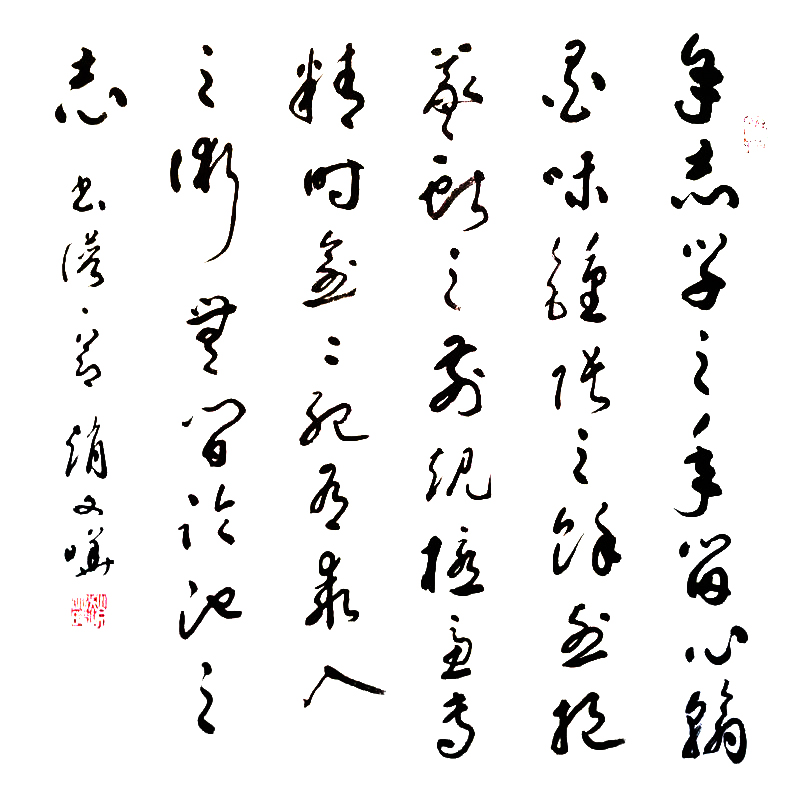 余志學之年留心翰
墨味鍾張之餘烈挹
羲獻之前規極慮專
精時逾二紀有乖入
之術無間臨池之
志 書譜 節 文